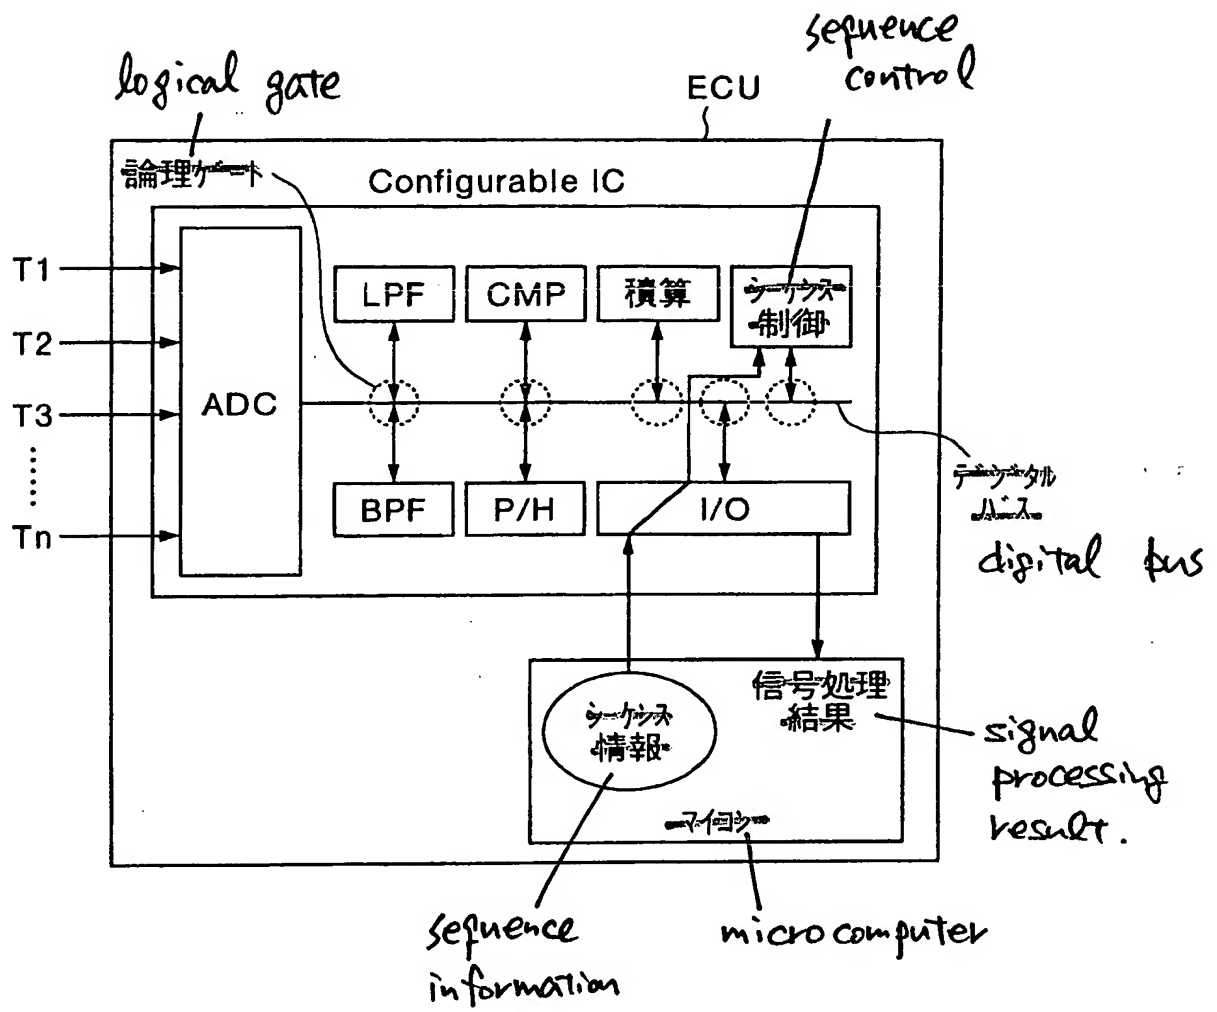 sequence
control
logical gate
ECU
論理ゲート
Configurable IC
T1
T2
T3
Tn
ADC
LPF
CMP
積算
シーケンス
制御
BPF
P/H
I/O
デジタル
バス
digital bus
シーケンス
情報
信号処理
結果
マイコン
signal
processing
result.
sequence
information
microcomputer